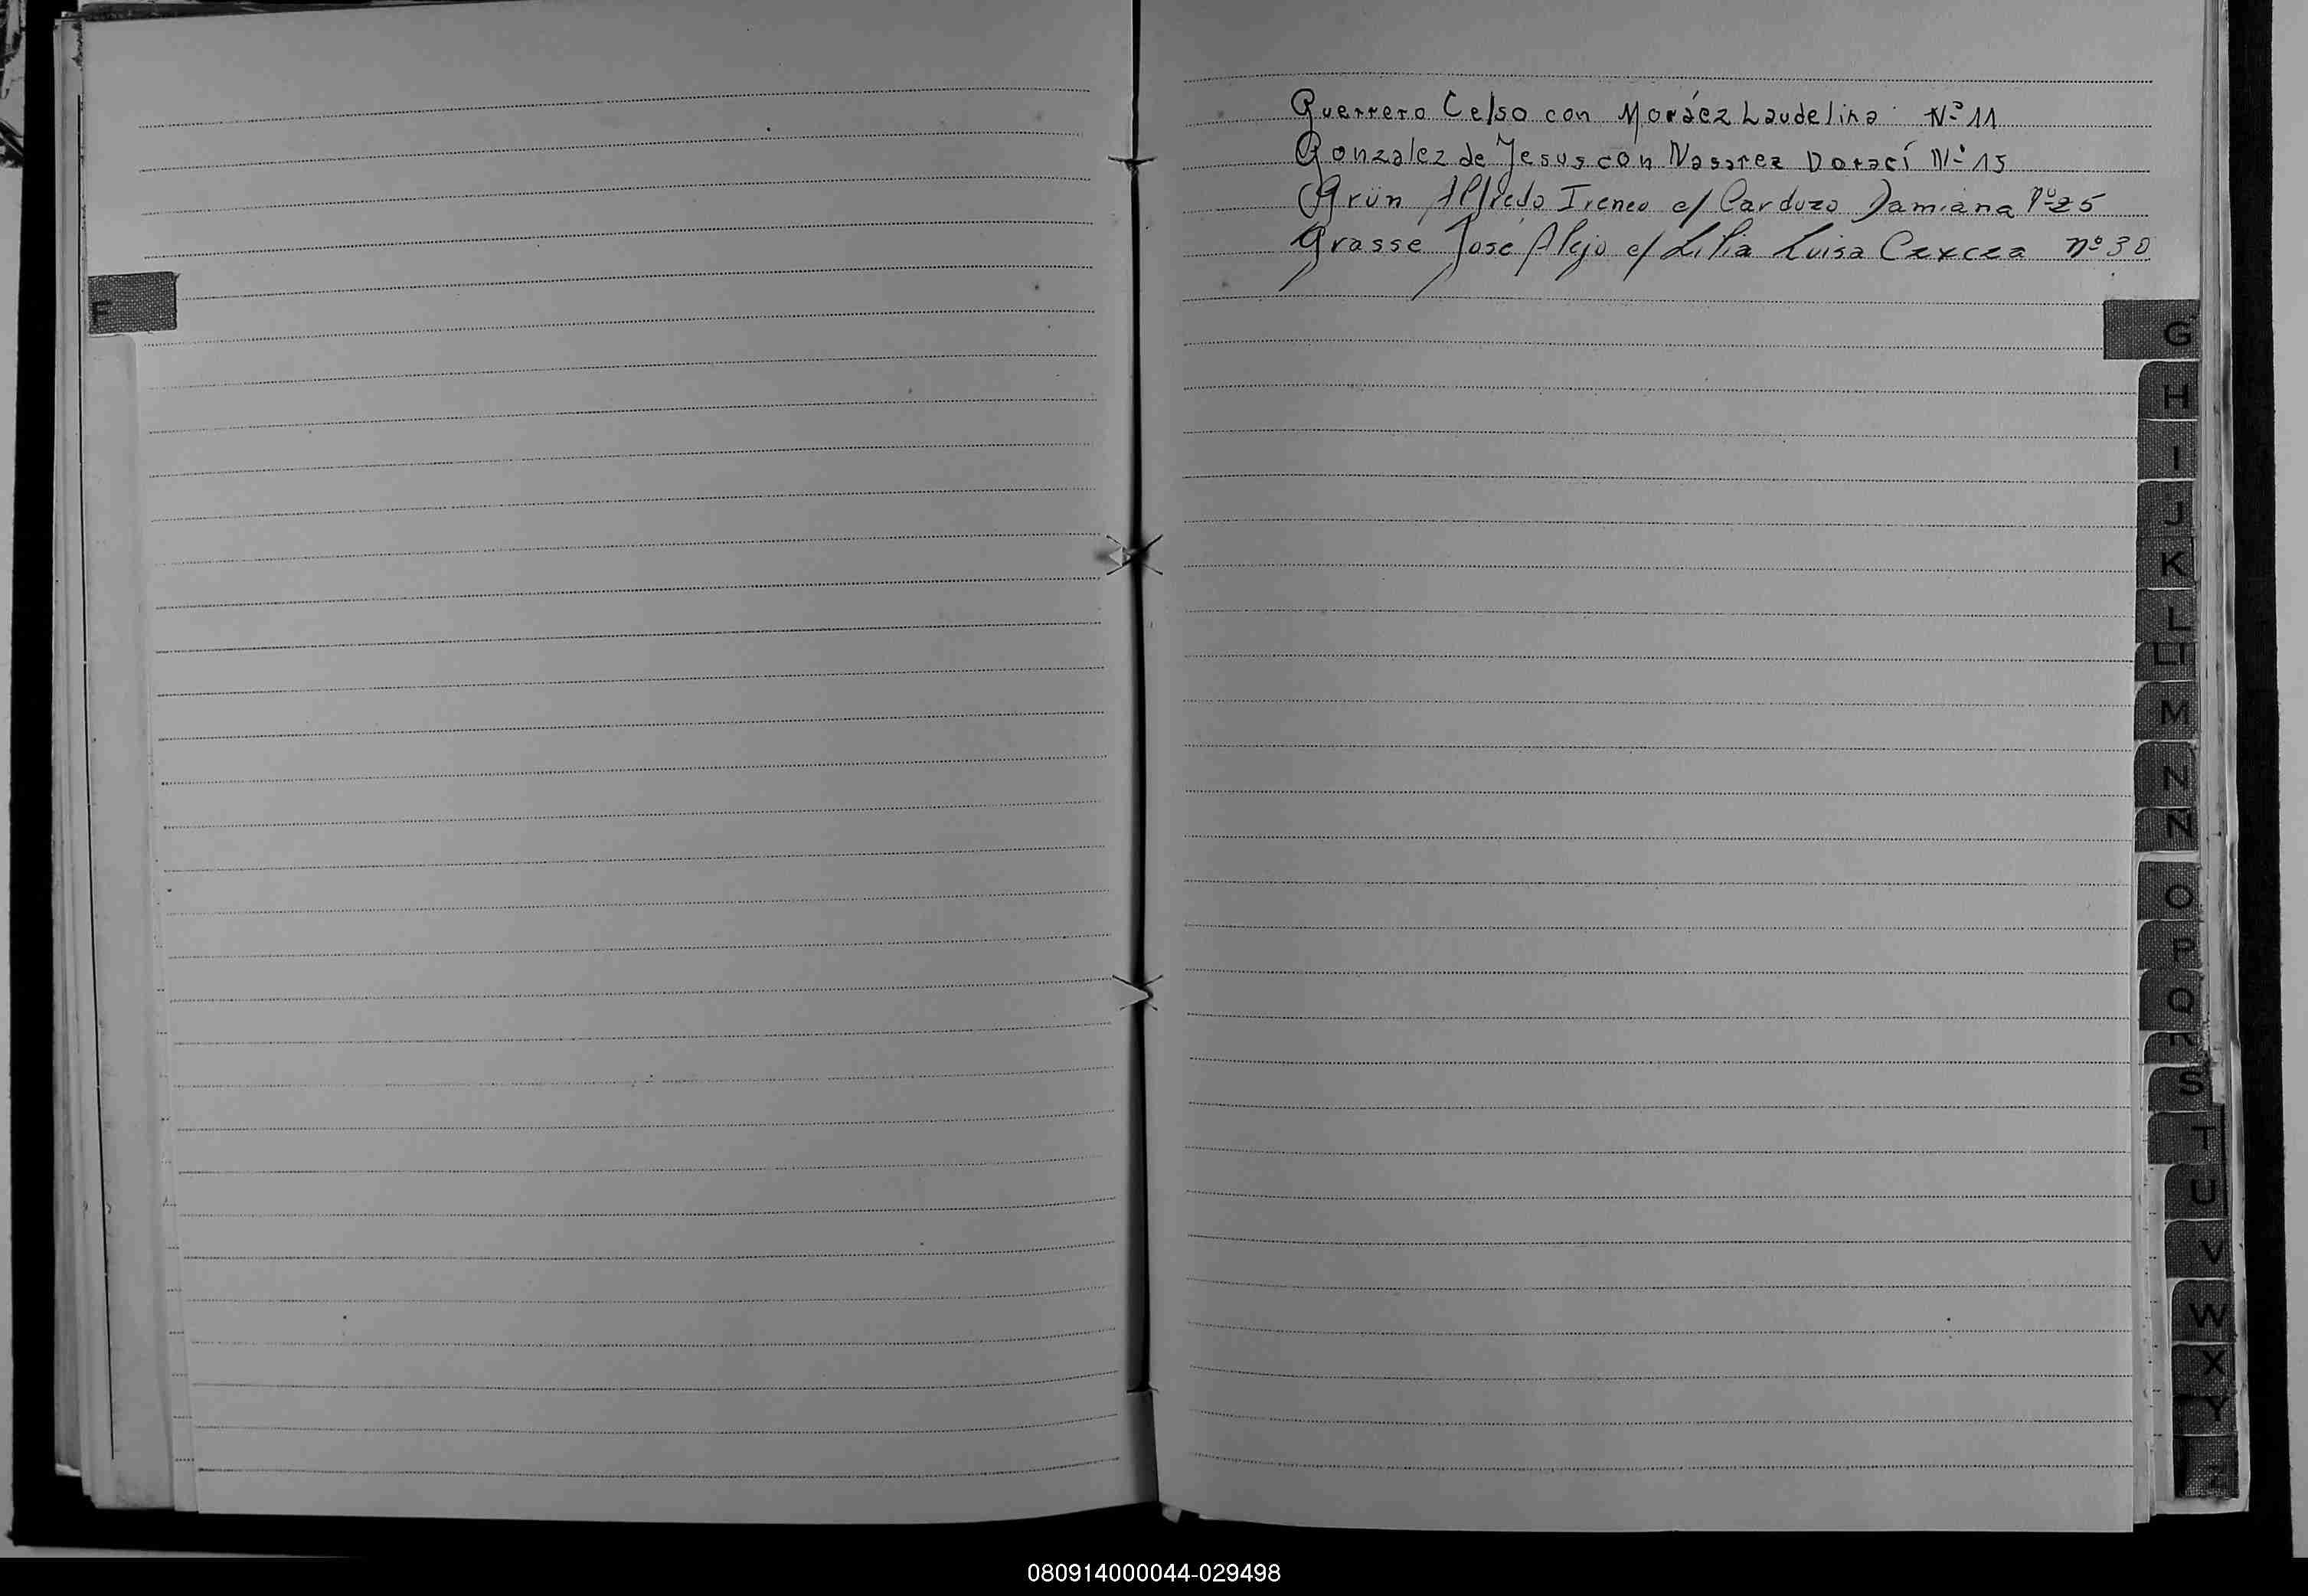 F
Guerrero Celso con Moráez Laudelina Nº 11
Gonzalez de Jesus con Nasarez Dorací Nº 15
Grün Alfredo Ireneo c/ Carduzo Damiana Nº 25
Grassé José Alejo c/ Lilia Luisa nº 30
G
H
I
J
K
L
Ll
M
N
Ñ
O
P
Q
R
S
T
U
V
W
X
Y
Z
080914000044-029498